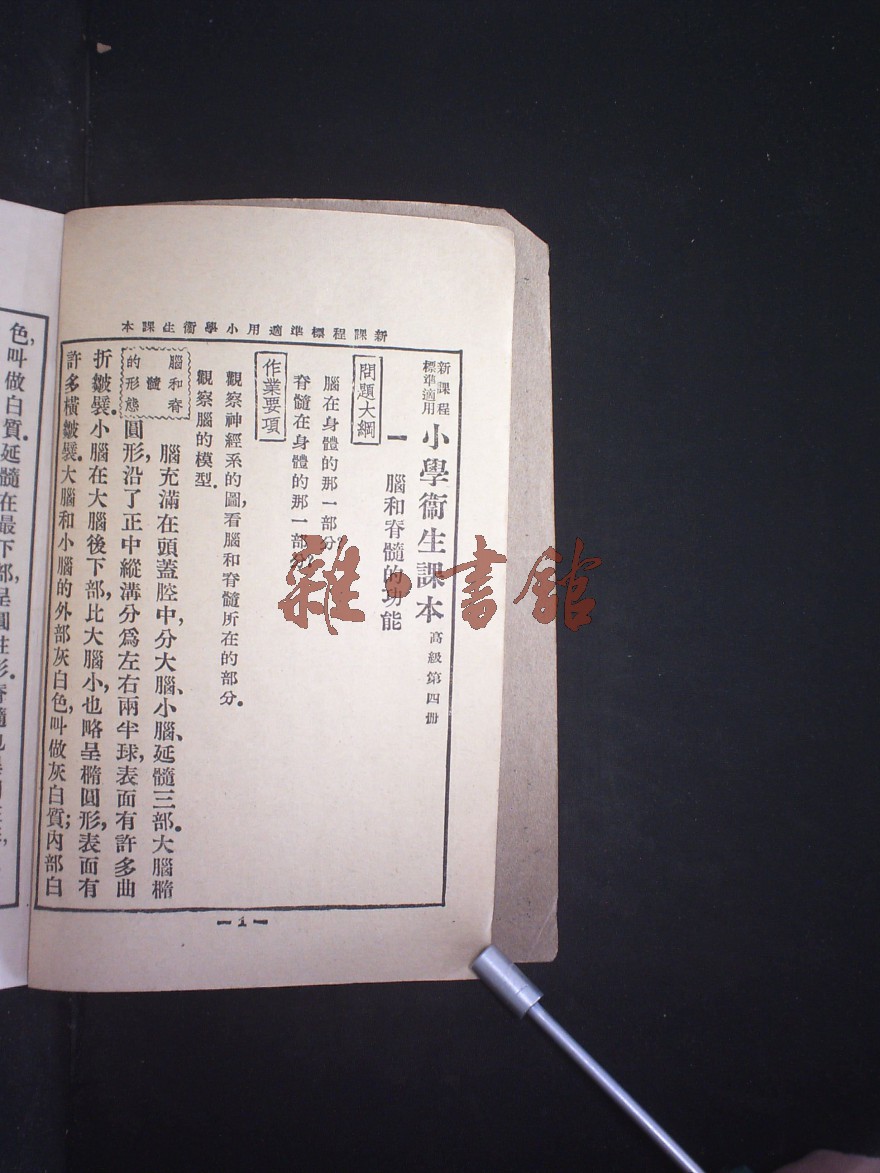 新課程標準適用小學衞生課本
新課程標準適用 小學衞生課本 高級第四冊
一 腦和脊髓的功能
問題大綱
腦在身體的那一部分
脊髓在身體的那一部分
作業要項
觀察神經系的圖,看腦和脊髓所在的部分.
觀察腦的模型.
腦和脊髓的形態
腦充滿在頭蓋腔中,分大腦、小腦、延髓三部.大腦橢
圓形,沿了正中縱溝分爲左右兩半球,表面有許多曲
折皺襞.小腦在大腦後下部,比大腦小,也略呈橢圓形,表面有
許多橫皺襞.大腦和小腦的外部灰白色,叫做灰白質;內部白
—1—
色,叫做白質.延髓在最下部,呈圓柱形.脊髓也
雜·書館